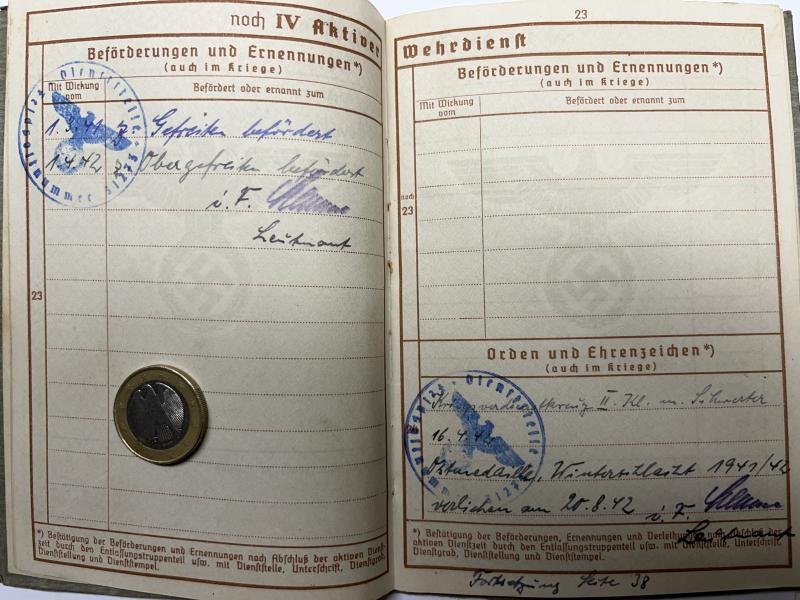 noch IV Aktiver
Beförderungen und Ernennungen*)
(auch im Kriege)
Mit Wirkung vom
Befördert oder ernannt zum
1.3.41 z. Gefreiten befördert
1.4.42 z. Obergefreiten befördert
i. F.
Leutnant
23
*) Bestätigung der Beförderungen und Ernennungen nach Abschluß der aktiven Dienst-
zeit durch den Entlassungstruppenteil usw. mit Dienststelle, Unterschrift, Dienstgrad,
Dienststellung und Dienststempel.
Dienststelle
Feldpostnummer 31273
23
Wehrdienst
Beförderungen und Ernennungen*)
(auch im Kriege)
Mit Wirkung vom
Befördert oder ernannt zum
noch
23
Orden und Ehrenzeichen*)
(auch im Kriege)
Kriegsverdienstkreuz II. Kl. m. Schwerter
16.4.42
Ostmedaille, Winterschlacht 1941/42
verliehen am 20.8.42 i. F.
Leutnant
*) Bestätigung der Beförderungen, Ernennungen und Verleihungen nach Abschluß der
aktiven Dienstzeit durch den Entlassungstruppenteil usw. mit Dienststelle, Unterschrift,
Dienstgrad, Dienststellung und Dienststempel.
Dienststelle
Fortsetzung Seite 38